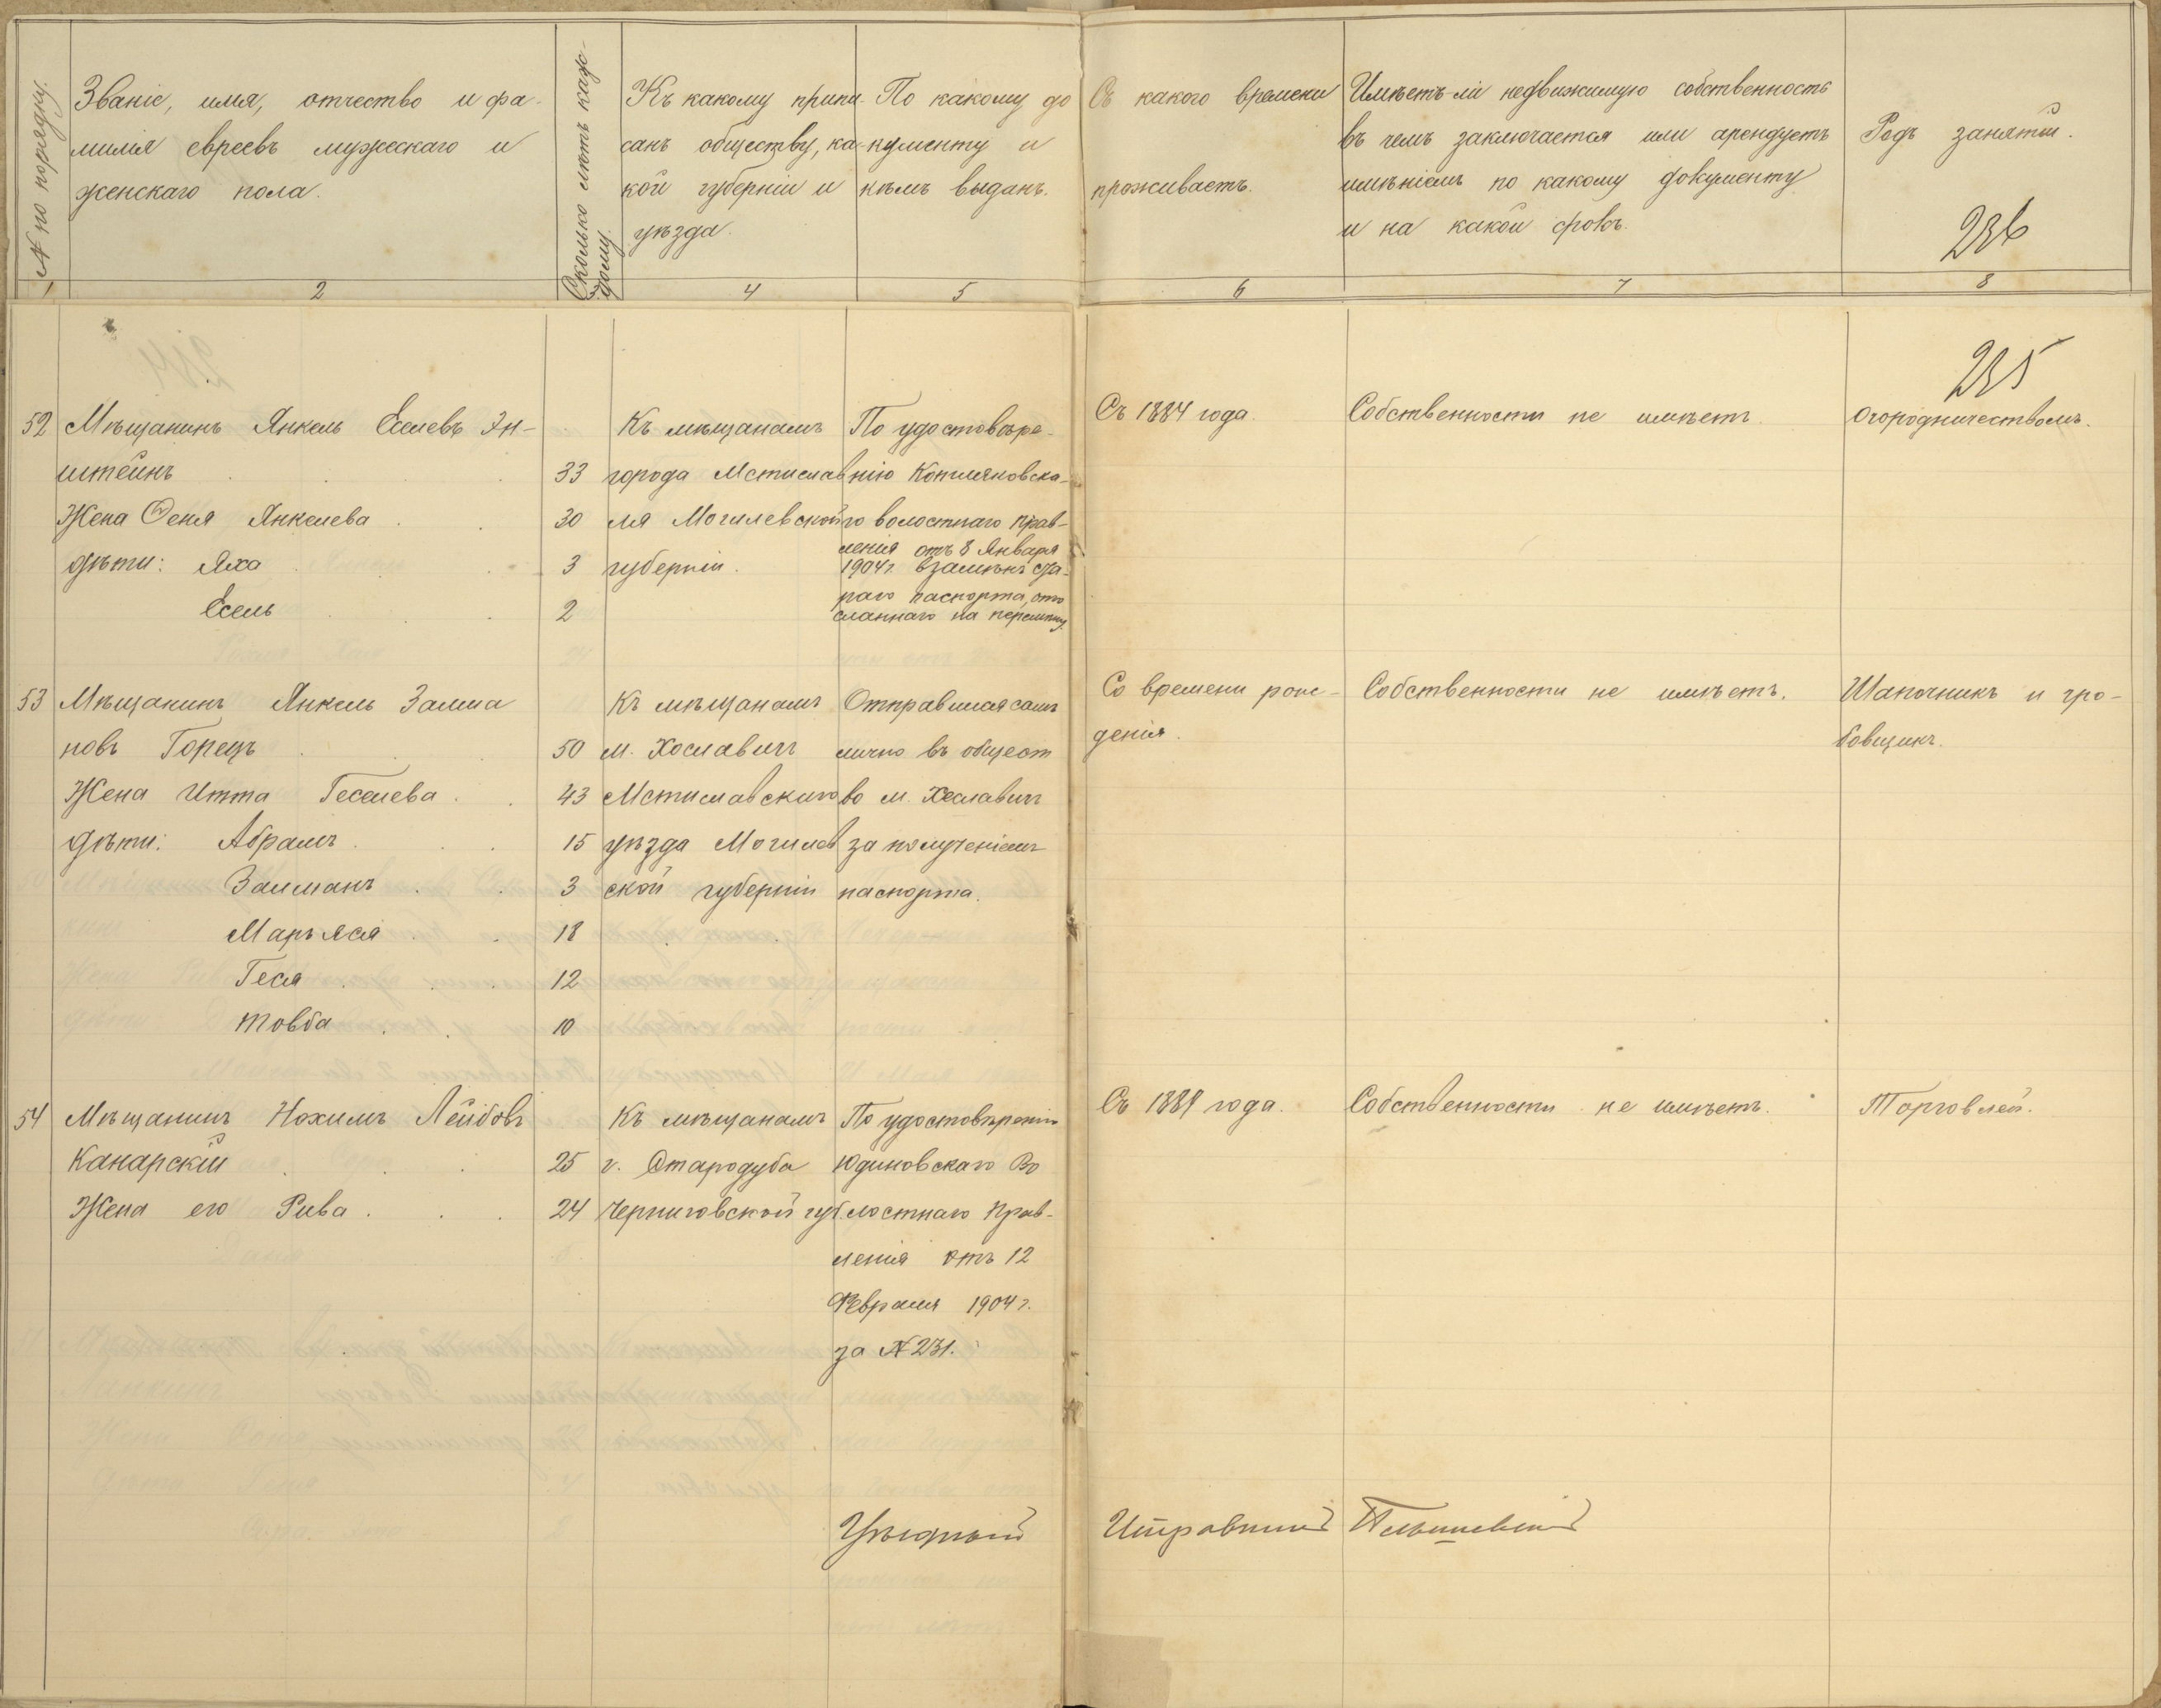 № по порядку.
Званіе, имя, отчество и фа-
милія евреевъ мужескаго и
женскаго пола.
Сколько лѣтъ каж-
дому.
Къ какому припи-
санъ обществу, ка-
кой губерніи и
уѣзда.
По какому до
кументу и
кѣмъ выданъ.
Съ какого времени
проживаетъ.
Имѣетъ-ли недвижимую собственность
въ чемъ заключается или арендуетъ
имѣніемъ по какому документу
и на какой срокъ.
Родъ занятій.
236
1 2 3 4 5 6 7 8
235
52 Мѣщанинъ Янкель Еселевъ Эп-
штейнъ 33
Жена Феня Янкелева 30
дѣти: Яха 3
Есель 2
Къ мѣщанамъ
города Мстислав
ля Могилевской
губерніи.
По удостовѣре-
нію Котляковска-
го волостнаго прав-
ленія отъ 8 Января
1904 г. взамѣнъ ста-
раго паспорта, ото
сланнаго на перемѣну
Съ 1884 года.
Собственности не имѣетъ
Огородничествомъ.
53 Мѣщанинъ Янкель Залма
новъ Горецъ 50
Жена Итта Геселева 43
дѣти: Абрамъ 15
Залманъ 3
Марьяся 18
Геся 12
Товба 10
Къ мѣщанамъ
м. Хославичъ
Мстиславскаго
уѣзда Могилев
ской губерніи
Отправился самъ
лично въ общест
во м. Хославичъ
за полученіемъ
паспорта.
Со времени рож-
денія.
Собственности не имѣетъ.
Шапочникъ и гро-
бовщикъ.
54 Мѣщанинъ Нохимъ Лейбовъ
Канарскій 25
Жена его Рива 24
Къ мѣщанамъ
г. Стародуба
Черниговской губ.
По удостовѣренію
Юдиновскаго Во
лостнаго Прав-
ленія отъ 12
Февраля 1904 г.
за № 231.
Съ 1889 года.
Собственности не имѣетъ.
Торговлей.
Уѣздный Исправникъ